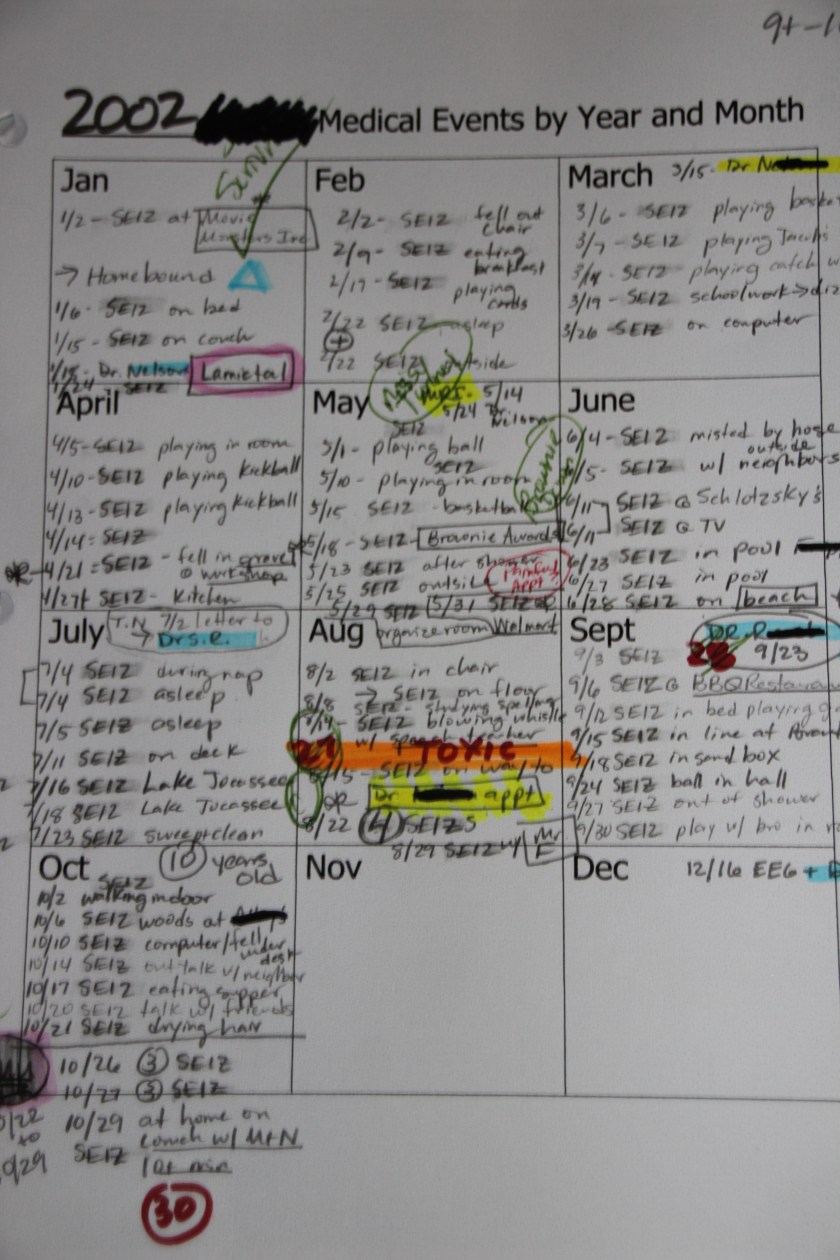 2002 Medical Events by Year and Month
Jan
1/2 - SEIZ at Movie
Monsters Inc
→ Homebound
1/6 - SEIZ on bed
1/15 - SEIZ on couch
Dr. Nelson Lamictal
1/24 SEIZ
Feb
2/2 - SEIZ fell out
chair
2/9 - SEIZ eating
breakfast
2/17 - SEIZ playing
cards
2/22 SEIZ asleep
+
2/22 SEIZ outside
March 3/15 - Dr
3/6 - SEIZ playing
3/7 - SEIZ playing
3/14 - SEIZ playing catch
3/19 - SEIZ schoolwork →
3/26 - SEIZ on computer
April
4/5 - SEIZ playing in room
4/10 - SEIZ playing Kickball
4/13 - SEIZ playing Kickball
4/14 = SEIZ
4/21 = SEIZ - fell in gravel
@ workshop
4/27 SEIZ - Kitchen
May 5/14
5/24 Dr
Nelson
SEIZ
5/1 - playing ball
SEIZ
5/10 - playing in room
5/15 SEIZ - basketball
5/18 - SEIZ - Brownie Awards
5/23 SEIZ after shower
5/25 SEIZ outside
Appt
5/29 SEIZ 5/31 SEIZ @
organize room Walmart
June
6/4 - SEIZ misted by hose
outside
6/5 - SEIZ w/ neighbors
6/11 SEIZ @ Schlotzsky's
6/11 SEIZ @ TV
6/23 SEIZ in pool
6/27 SEIZ in pool
6/28 SEIZ on beach
July T.N 7/2 letter to
→ Dr S.E.
7/4 SEIZ during nap
7/4 SEIZ asleep
7/5 SEIZ asleep
7/11 SEIZ on deck
7/16 SEIZ Lake Jocassee
7/18 SEIZ Lake Jocassee
7/23 SEIZ sweep+clean
Aug
8/2 SEIZ in chair
8/8 → SEIZ on floor
SEIZ - studying spelling
8/14 - SEIZ blowing whistle
w/ speech teacher
27 TOXIC
8/15 - SEIZ on way to
Dr appt
8/22 4 SEIZS
8/29 SEIZ w/ Mr
F
Sept DR. 9/23
9/3 SEIZ
9/6 SEIZ @ BBQ Restaurant
9/12 SEIZ in bed playing
9/15 SEIZ in line at
9/18 SEIZ in sand box
9/24 SEIZ ball in hall
9/27 SEIZ out of shower
9/30 SEIZ play w/ bro in
Oct 10 years
old
SEIZ
10/2 walking indoor
10/6 SEIZ woods at
10/10 SEIZ computer/fell
under
desk
10/14 SEIZ out talk w/ neighbor
10/17 SEIZ eating supper
10/20 SEIZ talk w/ friends
10/21 SEIZ drying hair
10/26 3 SEIZ
10/27 3 SEIZ
10/29 at home on
SEIZ couch w/ M+N
30
Nov
Dec 12/16 EEG +